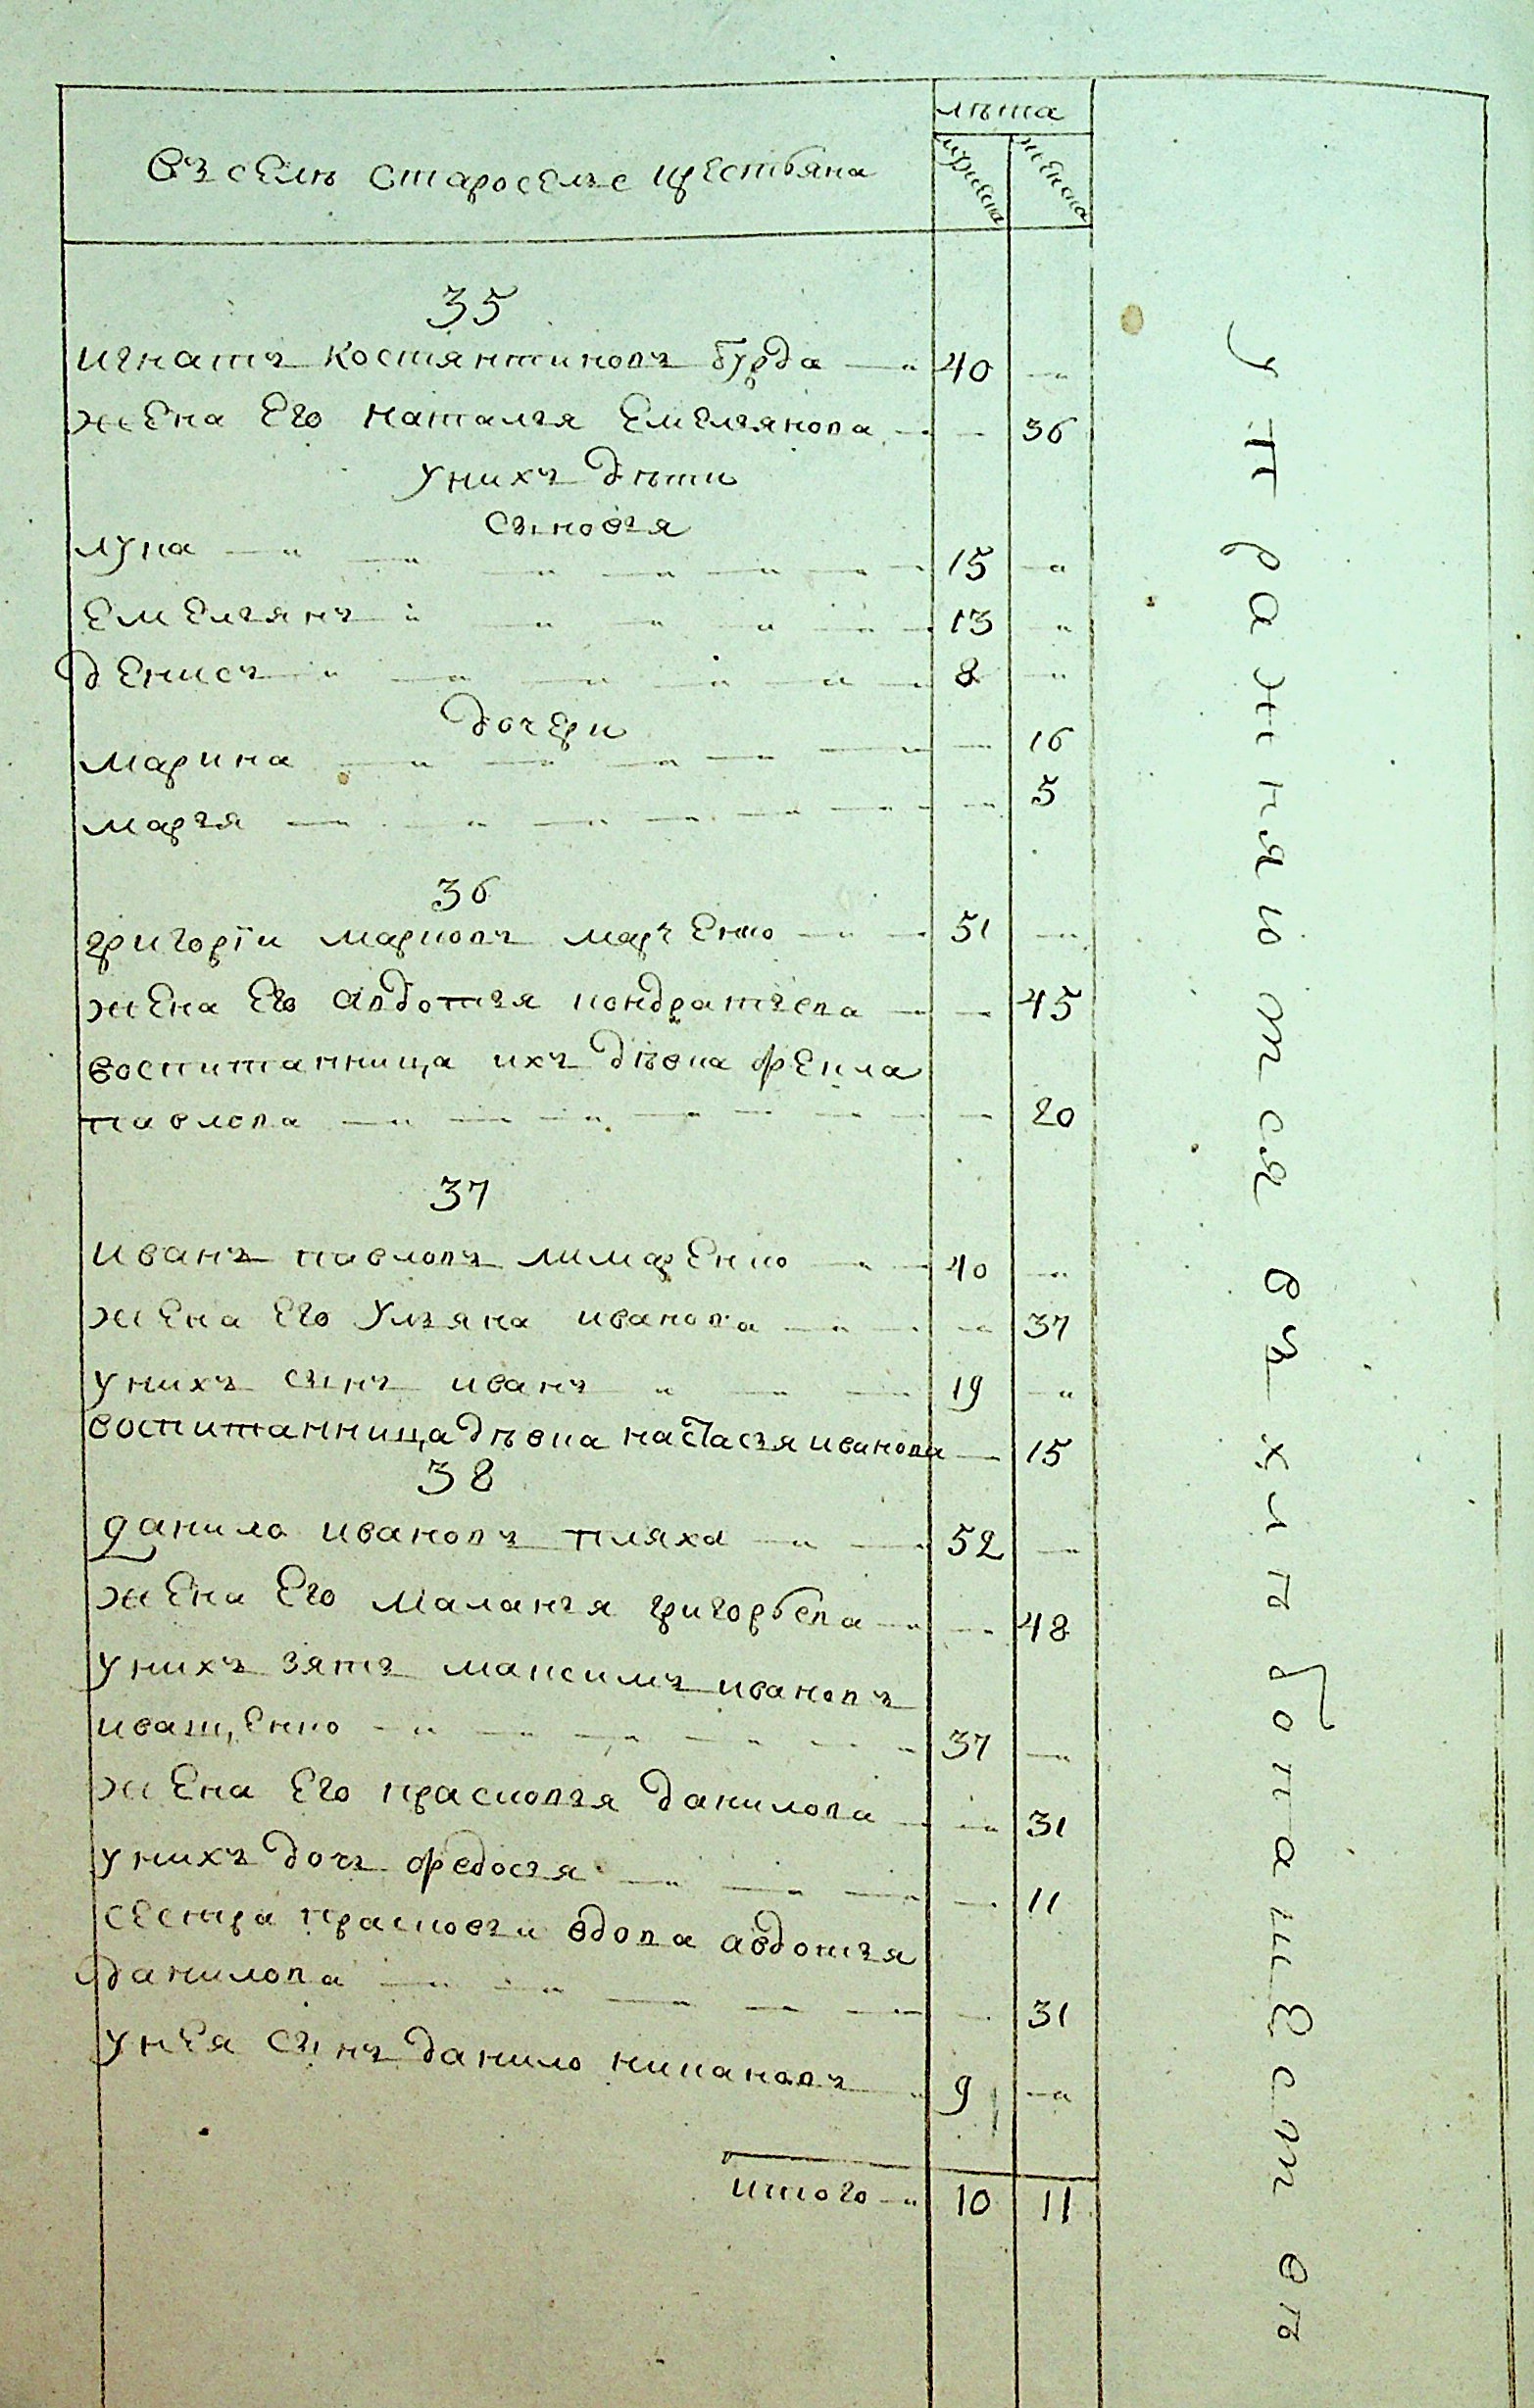 лѣта
Въ селѣ Староселье крестьяна
мужеска
женска
35
Игнатъ Костянтиновъ Бурда 40
жена Его Наталья Емельянова 36
у нихъ дѣти
сыновья
Лука 15
Емельянъ 13
Денисъ 8
дочери
Марина 16
Марья 5
36
Григорїи Марковъ Марченко 51
жена Его Авдотья Кондратьева 45
воспитанница ихъ дѣвка Фекла
Павлова 20
37
Иванъ Павловъ Лимаренко 40
жена Его Ульяна Иванова 37
у нихъ сынъ Иванъ 19
воспитанница дѣвка Настасья Иванова 15
38
Данило Ивановъ Пляха 52
жена Его Маланья Григорьева 48
у нихъ зять Максимъ Ивановъ
Иващенко 37
жена Его Прасковья Данилова 31
у нихъ дочь Федосья 11
сестра Прасковьи вдова Авдотья
Данилова 31
у нея сынъ Данило Никановъ 9
итого 10 11
упражняются въ хлѣбопашествѣ